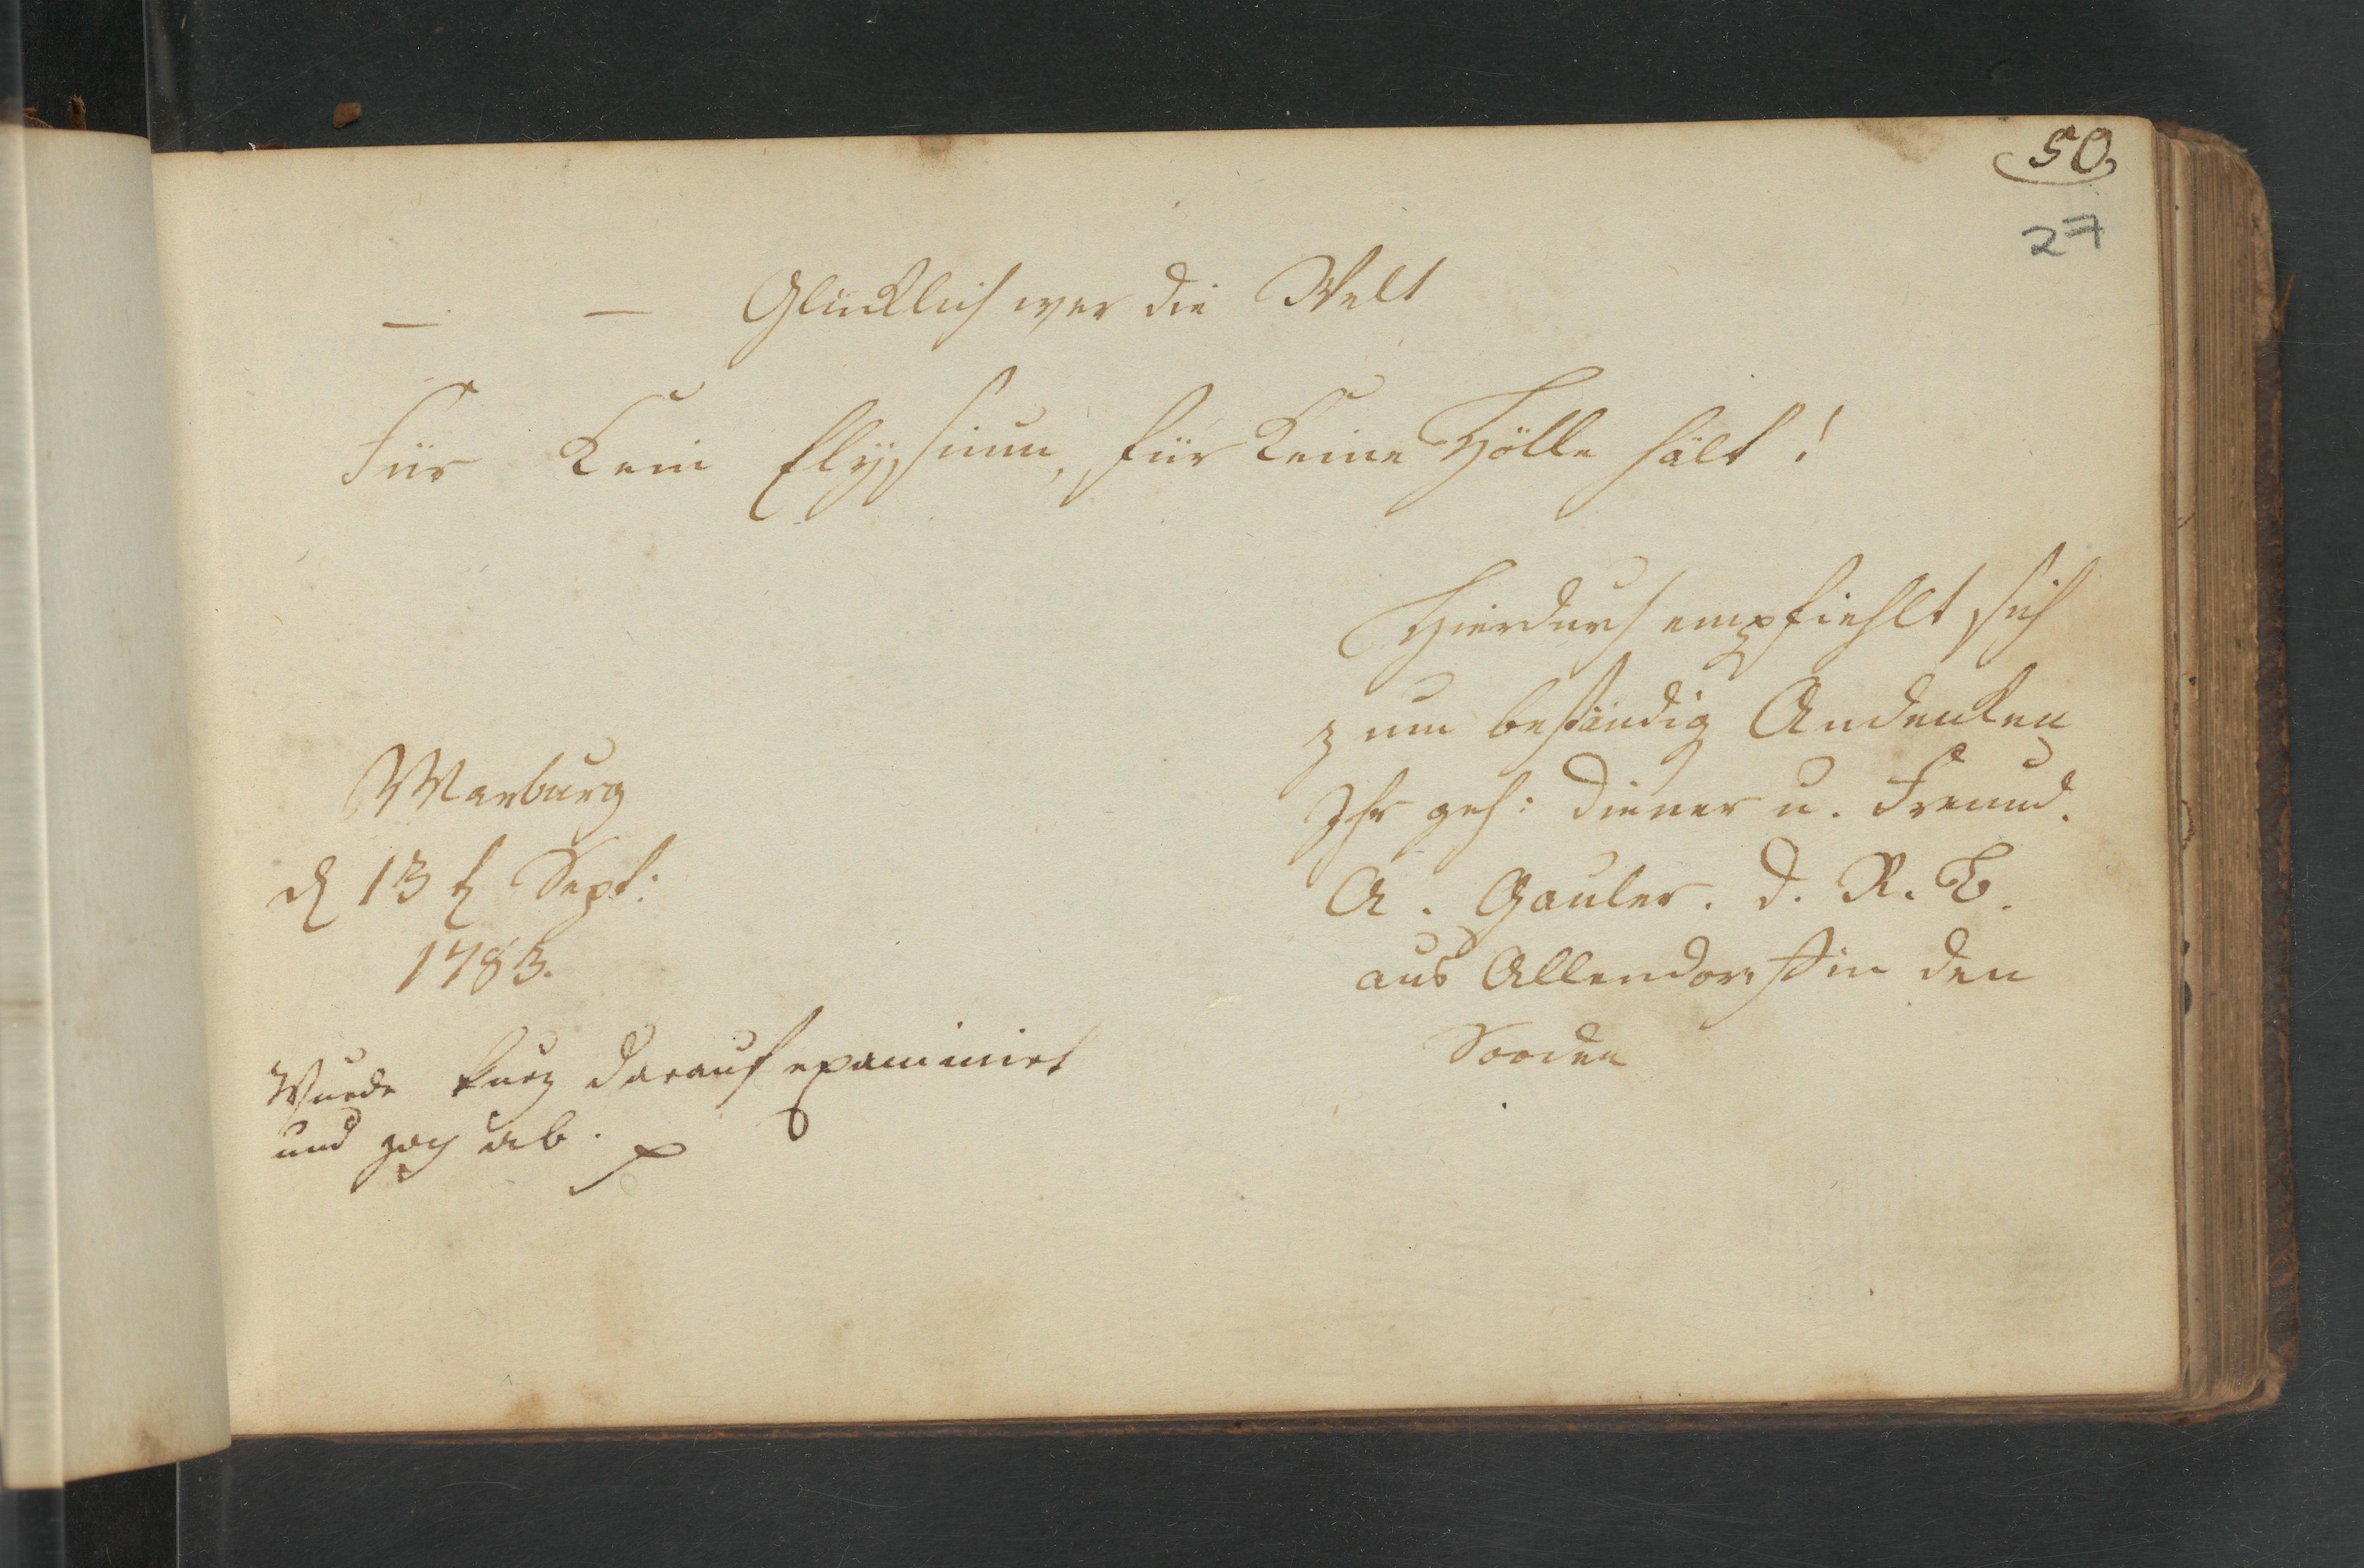 50
27
— — Glücklich wer die Welt
Für kein Elÿsium, für keine Hölle hält!
Hierdurch empfiehlt sich
zum beständig Andenken
Ihr geh: Diener u. Freund.
A. Gauler. d. R. B.
aus Allendorf in den
Sooden
Marburg
d 13 t Sept:
1783.
Wurde kurz darauf examinirt
und zog ab.